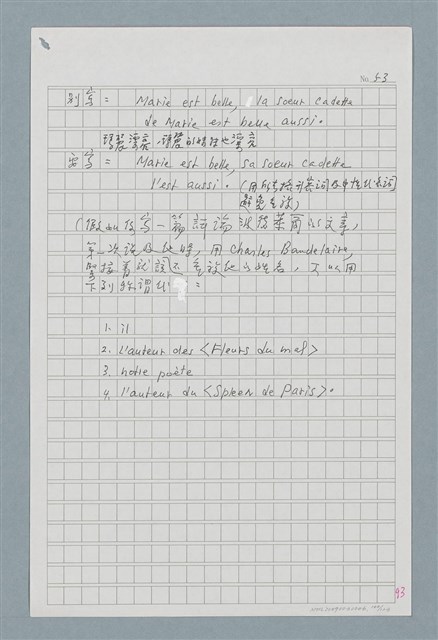 No. 53
別寫= Marie est belle, la soeur cadette
de Marie est belle aussi.
瑪麗漂亮,瑪麗的妹妹也漂亮
要寫= Marie est belle, sa soeur cadette
l'est aussi. (用所有格形容詞及中性代名詞
避免重複)
(假如你寫一篇討論波德萊爾的文章,
第一次談及他時,用 Charles Baudelaire,
緊接着就該不重複他的姓名,可以用
下列稱謂代 :
1. il
2. L'auteur des <Fleurs du mal>
3. notre poète
4. l'auteur du <Spleen de Paris>.
93